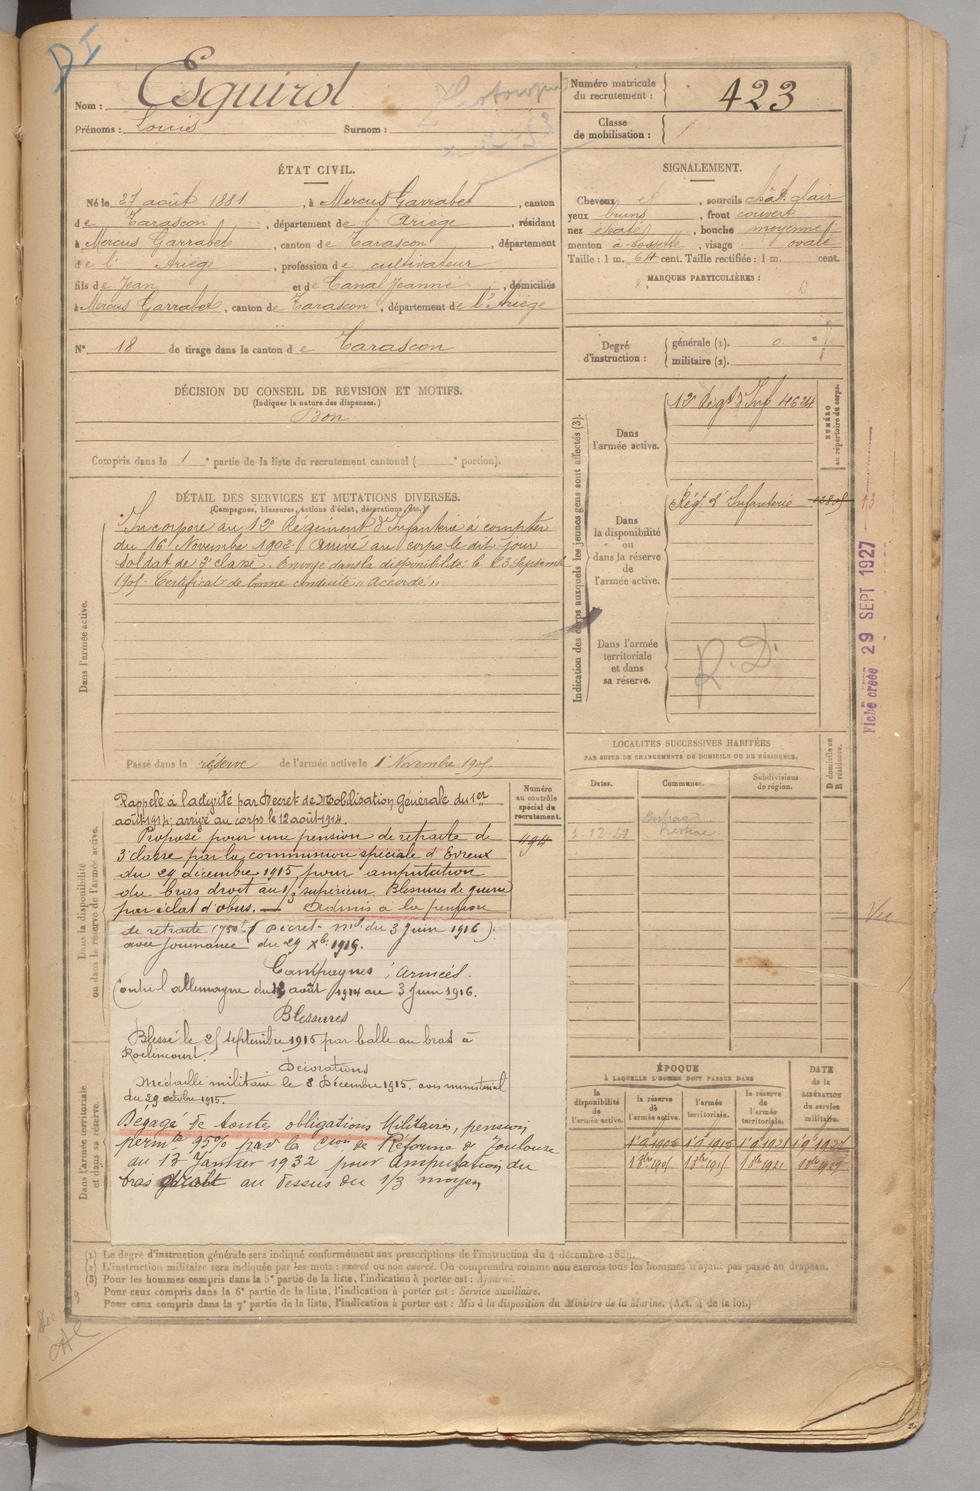 DI
Nom : Esquirol
Prénoms : Louis Surnom :
Numéro matricule du recrutement : 423
Classe de mobilisation :
ÉTAT CIVIL.
Né le 27 août 1881, à Mercus Garrabet, canton
de Tarascon, département de l'Ariège, résidant
à Mercus Garrabet, canton de Tarascon, département
de l' Ariège, profession de cultivateur
fils de Jean et de Canal Jeanne, domiciliés
à Mercus Garrabet, canton de Tarascon, département de l'Ariège
N° 18 de tirage dans le canton de Tarascon
SIGNALEMENT.
Cheveux et, sourcils chât. clair
yeux bruns, front couvert
nez épaté, bouche moyenne
menton à fossette, visage ovale
Taille : 1 m. 64 cent. Taille rectifiée : 1 m. cent.
MARQUES PARTICULIÈRES :
Degré d'instruction : générale (1). 0
militaire (2).
DÉCISION DU CONSEIL DE REVISION ET MOTIFS.
(Indiquer la nature des dispenses.)
Bon
Compris dans la 1e partie de la liste du recrutement cantonal ( e portion).
DÉTAIL DES SERVICES ET MUTATIONS DIVERSES.
(Campagnes, blessures, actions d'éclat, décorations, etc.)
Dans l'armée active.
Incorporé au 12e Régiment d'Infanterie à compter
du 16 Novembre 1902. Arrivé au corps le dit jour
Soldat de 2e classe. Envoyé dans la disponibilité le 23 Septembre
1905. Certificat de bonne conduite "Accordé"
Passé dans la réserve de l'armée active le 1 Novembre 1905
Indication des corps auxquels les jeunes gens sont affectés (3).
NUMÉRO au répertoire du corps.
Dans l'armée active.
12e Régt d'Inf 4624
Dans la disponibilité ou dans la réserve de l'armée active.
Régt d'Infanterie
Dans l'armée territoriale et dans sa réserve.
R.D.
Fiche créée 29 SEPT 1927
LOCALITÉS SUCCESSIVES HABITÉES
PAR SUITE DE CHANGEMENTS DE DOMICILE OU DE RÉSIDENCE.
Dates. Communes. Subdivisions de région. D domicile ou R résidence.
Dans la disponibilité ou dans la réserve de l'armée active.
Numéro au contrôle spécial du recrutement.
494
Rappelé à l'activité par Décret de Mobilisation Générale du 1er
août 1914; arrivé au corps le 12 août 1914.
Proposé pour une pension de retraite de
3e classe par la commission spéciale d'Evreux
du 29 décembre 1915, pour amputation
du bras droit au 1/3 supérieur. Blessures de guerre
par éclat d'obus. — Admis à la pension
de retraite (750f) (Décret. mel. du 3 Juin 1916)
avec jouissance du 29 Xbre 1915.
Campagnes: Armées.
Contre l'allemagne du 12 août 1914 au 3 Juin 1916.
Blessures
Blessé le 25 septembre 1915 par balle au bras à
Roclincourt.
Décorations
Médaille militaire le 8 Décembre 1915. avis ministériel
du 29 octobre 1915.
Dans l'armée territoriale et dans sa réserve.
Dégagé de toutes obligations Militaires, pension
permte 95% par la Cion de Réforme de Toulouse
du 13 Janvier 1932 pour Amputation du
bras droit au dessus du 1/3 moyen
ÉPOQUE
À LAQUELLE L'HOMME DOIT PASSER DANS
la disponibilité de l'armée active. la réserve de l'armée active. l'armée territoriale. la réserve de l'armée territoriale.
DATE de la LIBÉRATION du service militaire.
(1) Le degré d'instruction générale sera indiqué conformément aux prescriptions de l'instruction du 4 décembre 1889.
(2) L'instruction militaire sera indiquée par les mots : exercé ou non exercé. On comprendra comme non exercés tous les hommes n'ayant pas passé au drapeau.
(3) Pour les hommes compris dans la 5e partie de la liste, l'indication à porter est : Ajourné.
Pour ceux compris dans la 6e partie de la liste, l'indication à porter est : Service auxiliaire.
Pour ceux compris dans la 7e partie de la liste, l'indication à porter est : Mis à la disposition du Ministre de la Marine. (Art. 4 de la loi.)